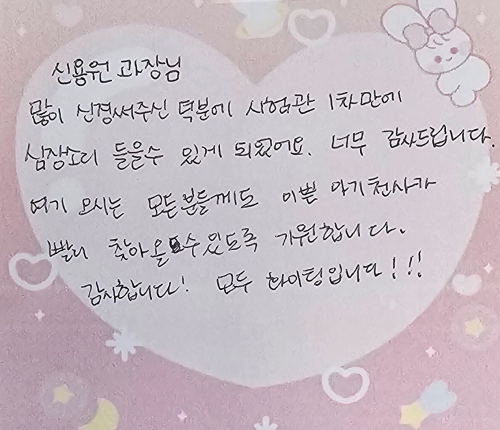 신용원 과장님
많이 신경써주신 덕분에 시험관 1차만에
심장소리 들을수 있게 되었어요. 너무 감사드립니다.
여기 오시는 모든분들께도 이쁜 아기천사가
빨리 찾아올수있도록 기원합니다.
감사합니다! 모두 화이팅입니다!!!